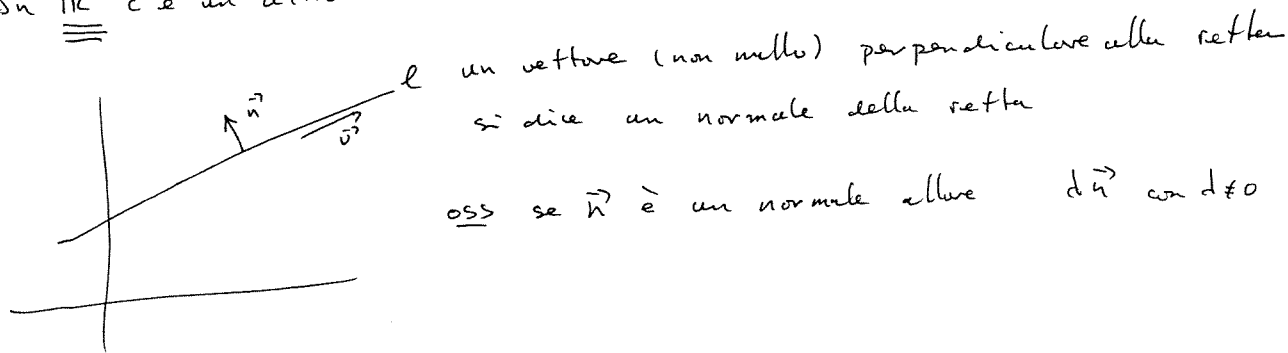 c'è un
l un vettore (non nullo) perpendicolare alla retta
n⃗
v⃗
si dice un normale della retta
oss se n⃗ è un normale allora d n⃗ con d≠0